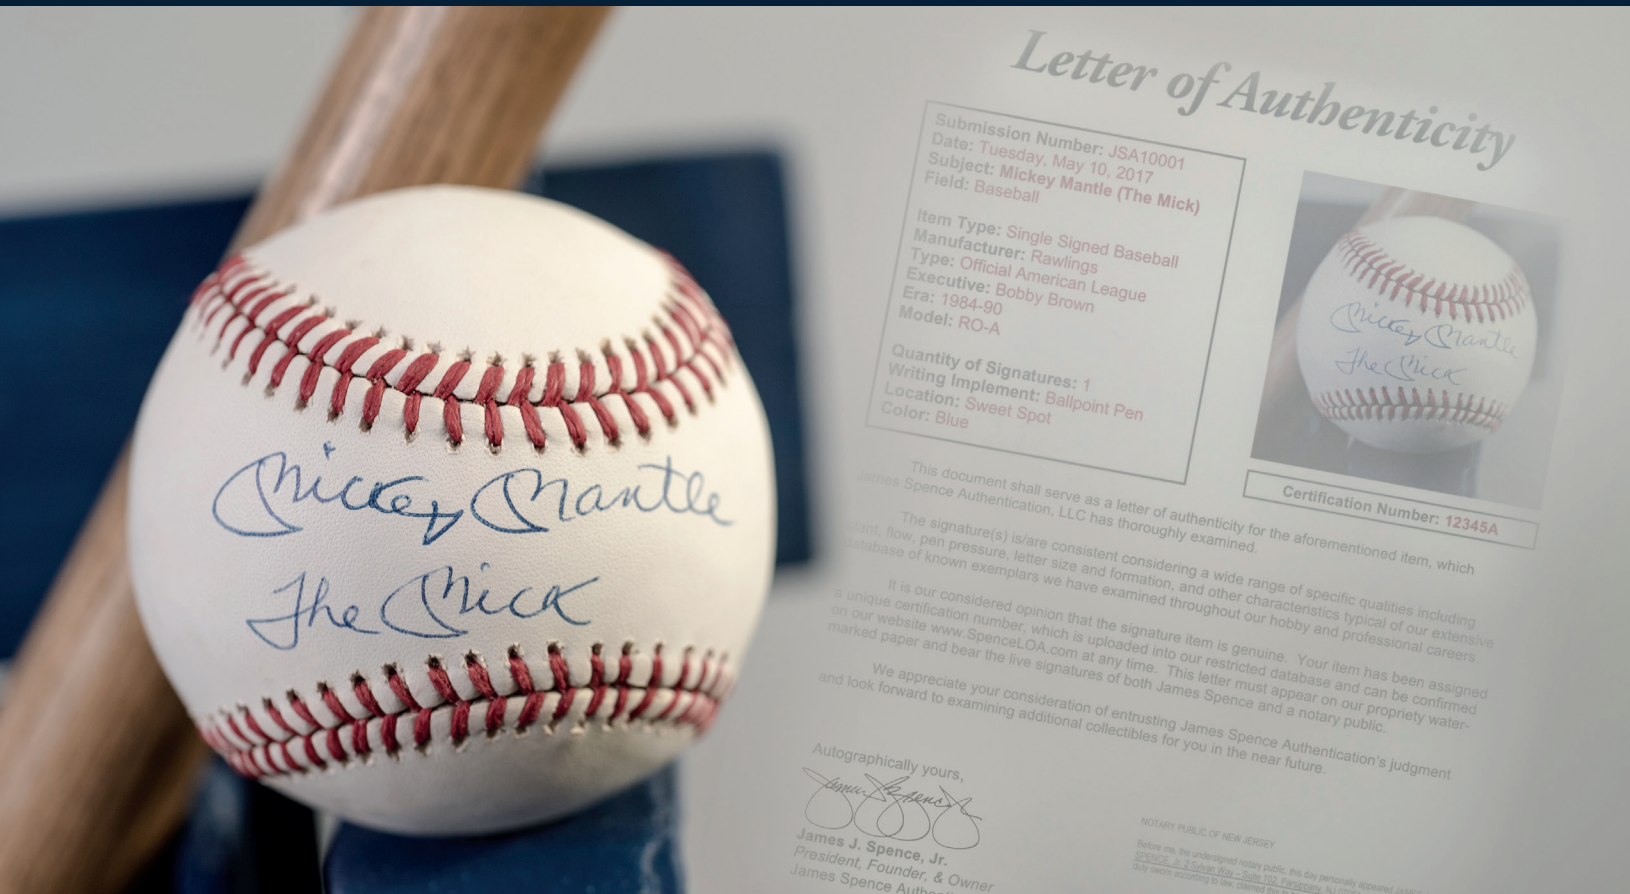 Mickey Mantle
The Mick
Letter of Authenticity
Submission Number: JSA10001
Date: Tuesday, May 10, 2017
Subject: Mickey Mantle (The Mick)
Field: Baseball
Item Type: Single Signed Baseball
Manufacturer: Rawlings
Type: Official American League
Executive: Bobby Brown
Era: 1984-90
Model: RO-A
Quantity of Signatures: 1
Writing Implement: Ballpoint Pen
Location: Sweet Spot
Color: Blue
Mickey Mantle
The Mick
Certification Number: 12345A
This document shall serve as a letter of authenticity for the aforementioned item, which
James Spence Authentication, LLC has thoroughly examined.
The signature(s) is/are consistent considering a wide range of specific qualities including
slant, flow, pen pressure, letter size and formation, and other characteristics typical of our extensive
database of known exemplars we have examined throughout our hobby and professional careers.
It is our considered opinion that the signature item is genuine. Your item has been assigned
a unique certification number, which is uploaded into our restricted database and can be confirmed
on our website www.SpenceLOA.com at any time. This letter must appear on our propriety water-
marked paper and bear the live signatures of both James Spence and a notary public.
We appreciate your consideration of entrusting James Spence Authentication's judgment
and look forward to examining additional collectibles for you in the near future.
Autographically yours,
James J. Spence, Jr.
President, Founder, & Owner
James Spence
NOTARY PUBLIC OF NEW JERSEY
Before me, the undersigned notary public, this day personally appeared JAMES
SPENCE, Jr. 2 Sylvan Way - Suite 102, Parsippany, NJ
duly sworn according to law, claimed